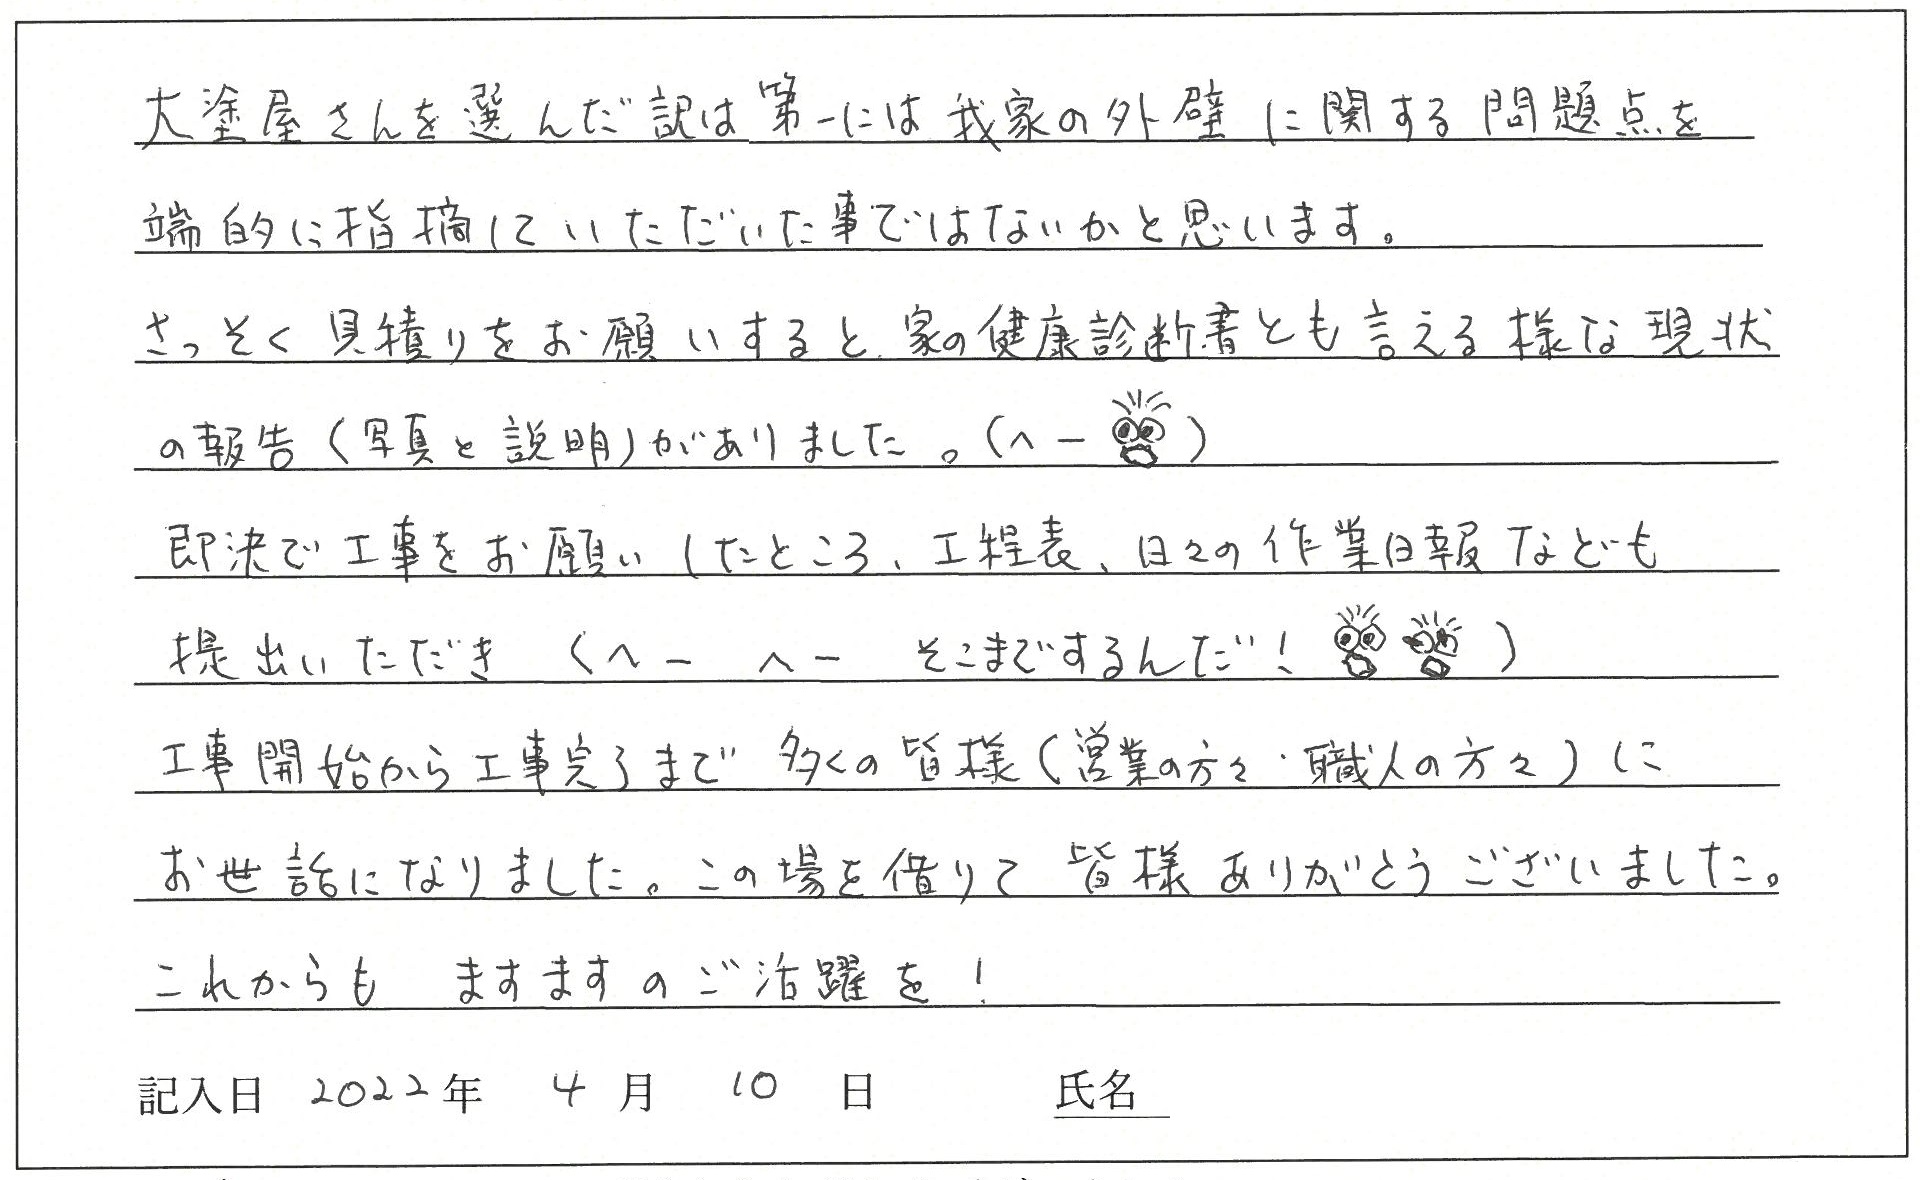 大塗屋さんを選んだ訳は第一には我家の外壁に関する問題点を
端的に指摘していただいた事ではないかと思います。
さっそく見積りをお願いすると、家の健康診断書とも言える様な現状
の報告(写真と説明)がありました。(へー)
即決で工事をお願いしたところ、工程表、日々の作業日報なども
提出いただき (へー へー そこまでするんだ!)
工事開始から工事完了まで 多くの皆様(営業の方々・職人の方々)に
お世話になりました。この場を借りて 皆様 ありがとうございました。
これからも ますますのご活躍を!
記入日 2022年 4月 10日 氏名